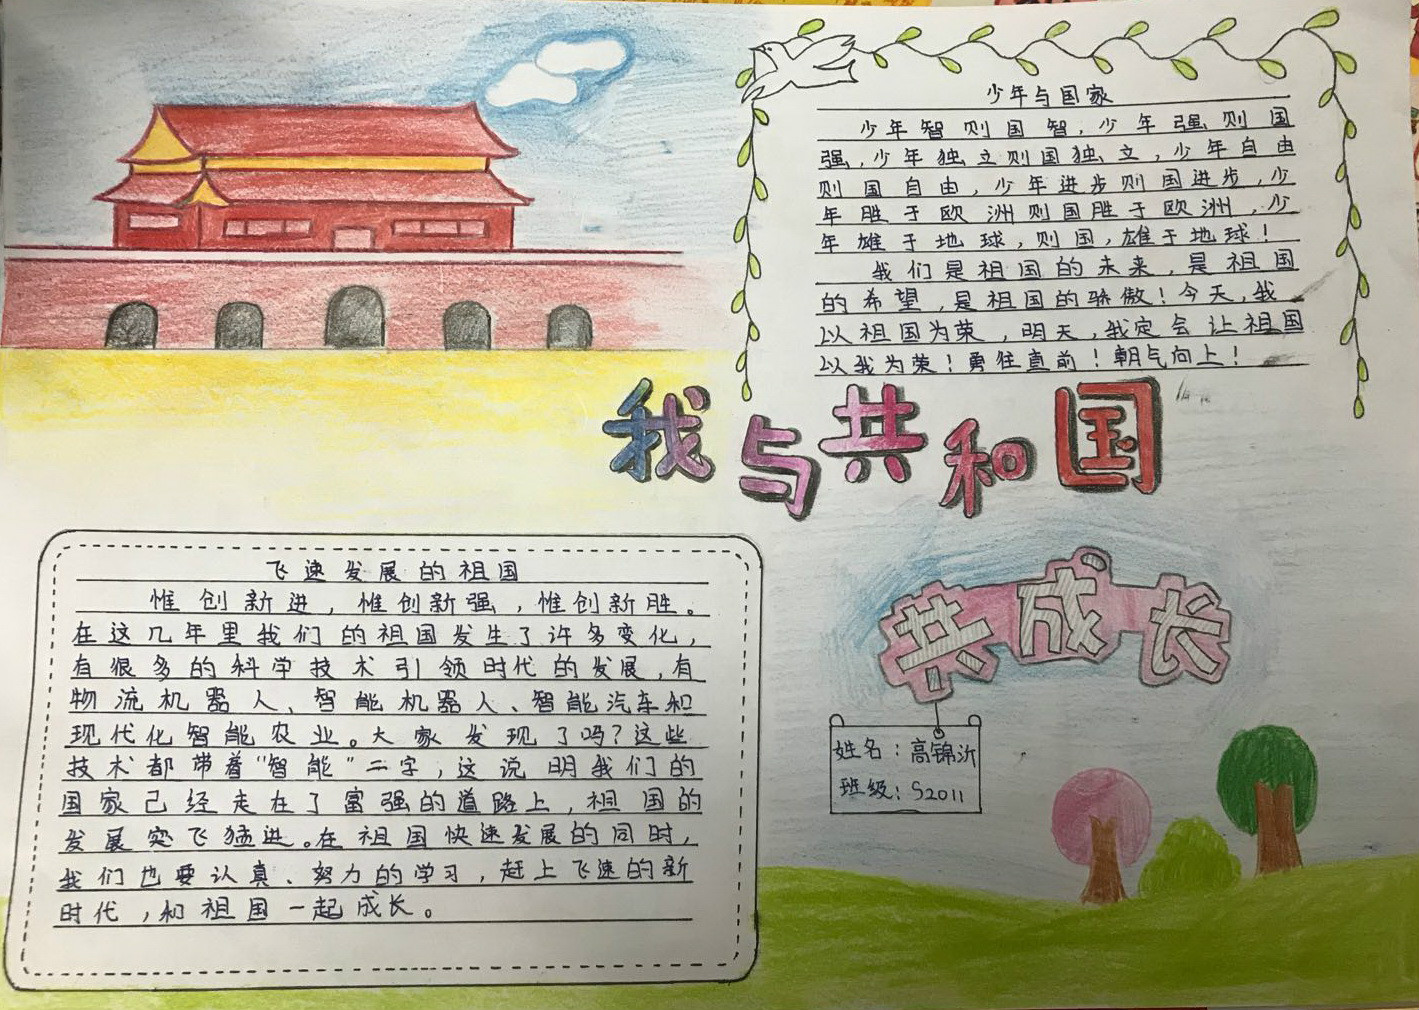 少年与国家
少年智则国智，少年强则国
强，少年独立则国独立，少年自由
则国自由，少年进步则国进步，少
年胜于欧洲则国胜于欧洲，少
年雄于地球，则国，雄于地球！
我们是祖国的未来，是祖国
的希望，是祖国的骄傲！今天，我
以祖国为荣，明天，我定会让祖国
以我为荣！勇往直前！朝气向上！
我与共和国
共成长
姓名：高锦沂
班级：S2011
飞速发展的祖国
惟创新进，惟创新强，惟创新胜。
在这几年里我们的祖国发生了许多变化，
有很多的科学技术引领时代的发展，有
物流机器人、智能机器人、智能汽车和
现代化智能农业。大家发现了吗？这些
技术都带着“智能”二字，这说明我们的
国家已经走在了富强的道路上，祖国的
发展突飞猛进。在祖国快速发展的同时，
我们也要认真、努力的学习，赶上飞速的新
时代，和祖国一起成长。